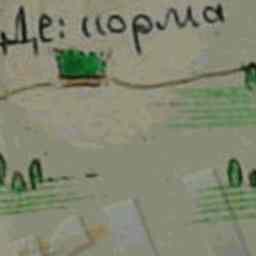 Де: норма